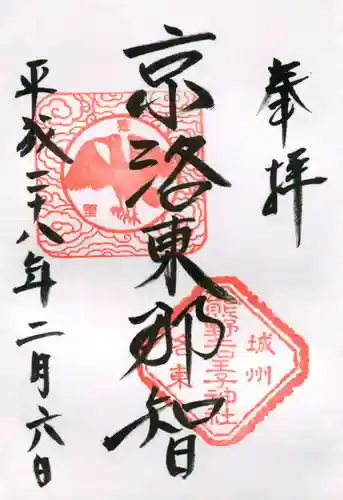 奉拝
城州
熊野若王子神社
洛東
京洛東那智
平成二十八年二月六日